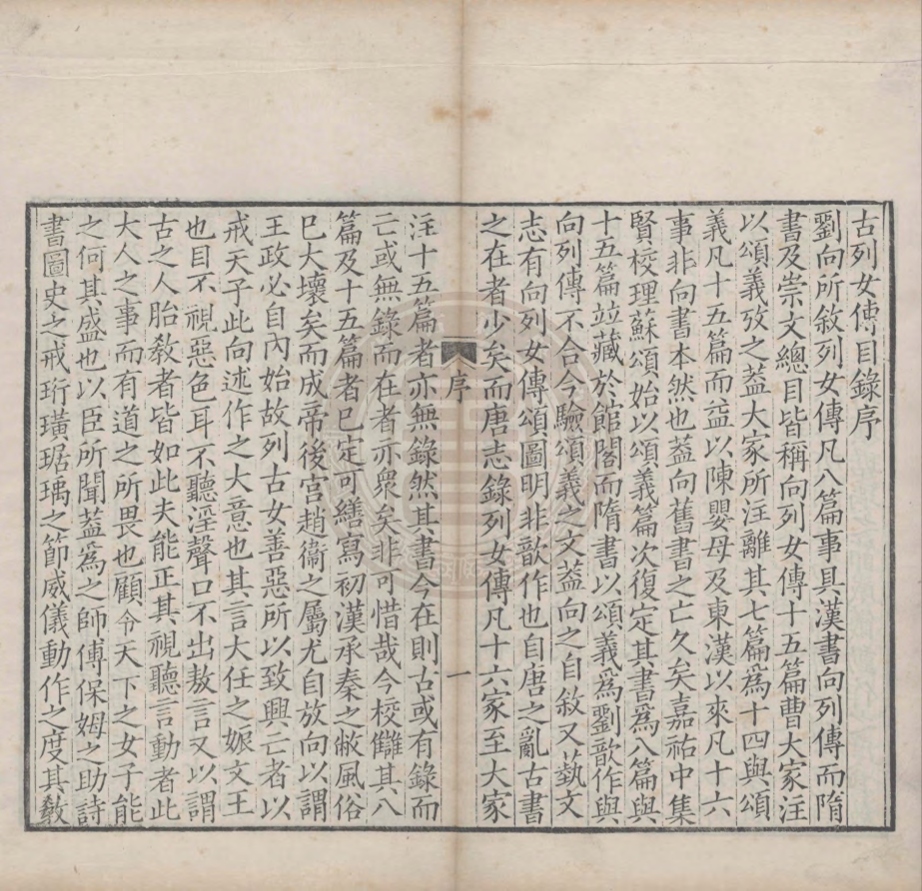 古列女傳目錄序
劉向所敘列女傳凡八篇事具漢書向列傳而隋
書及崇文總目皆稱向列女傳十五篇曹大家注
以頌義攷之蓋大家所注離其七篇爲十四與頌
義凡十五篇而益以陳嬰母及東漢以來凡十六
事非向書本然也蓋向舊書之亡久矣嘉祐中集
賢校理蘇頌始以頌義篇次復定其書爲八篇與
十五篇竝藏於館閣而隋書以頌義爲劉歆作與
向列傳不合今驗頌義之文蓋向之自敘又藝文
志有向列女傳頌圖明非歆作也自唐之亂古書
之在者少矣而唐志錄列女傳凡十六家至大家
序
一
注十五篇者亦無錄然其書今在則古或有錄而
亡或無錄而在者亦衆矣非可惜哉今校讎其八
篇及十五篇者已定可繕寫初漢承秦之敝風俗
巳大壞矣而成帝後宮趙衞之屬尤自放向以謂
王政必自內始故列古女善惡所以致興亡者以
戒天子此向述作之大意也其言大任之娠文王
也目不視惡色耳不聽淫聲口不出敖言又以謂
古之人胎敎者皆如此夫能正其視聽言動者此
大人之事而有道之所畏也顧令天下之女子能
之何其盛也以臣所聞蓋爲之師傅保姆之助詩
書圖史之戒珩璜琚瑀之節威儀動作之度其敎